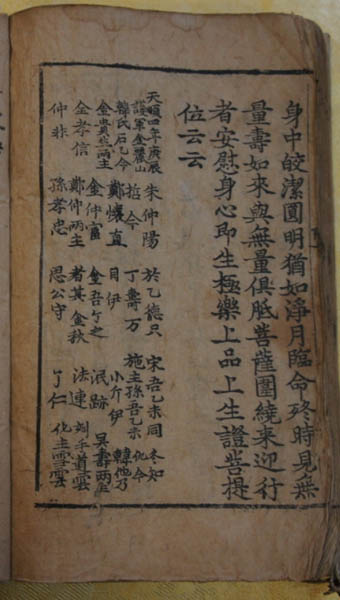 身中皎潔圓明猶如淨月臨命終時見無
量壽如來與無量俱胝菩薩圍繞來迎行
者安慰身心即生極樂上品上生證菩提
位云云
天順四年庚辰 朱仲陽 於乙德只 宋吾乙未同 冬知
護軍金麗山 莻今 丁壽万 施主孫吾乙未 化今
韓氏石乙今 鄭懷直 目伊 小介伊
金貴生兩主 金仲富 金吾 泯跡 吳壽兩主
金孝信 鄭仲兩主 者其 金秋 法連 刻手道雲
仲非 孫孝忠 恩公守 了仁 化主雪雲